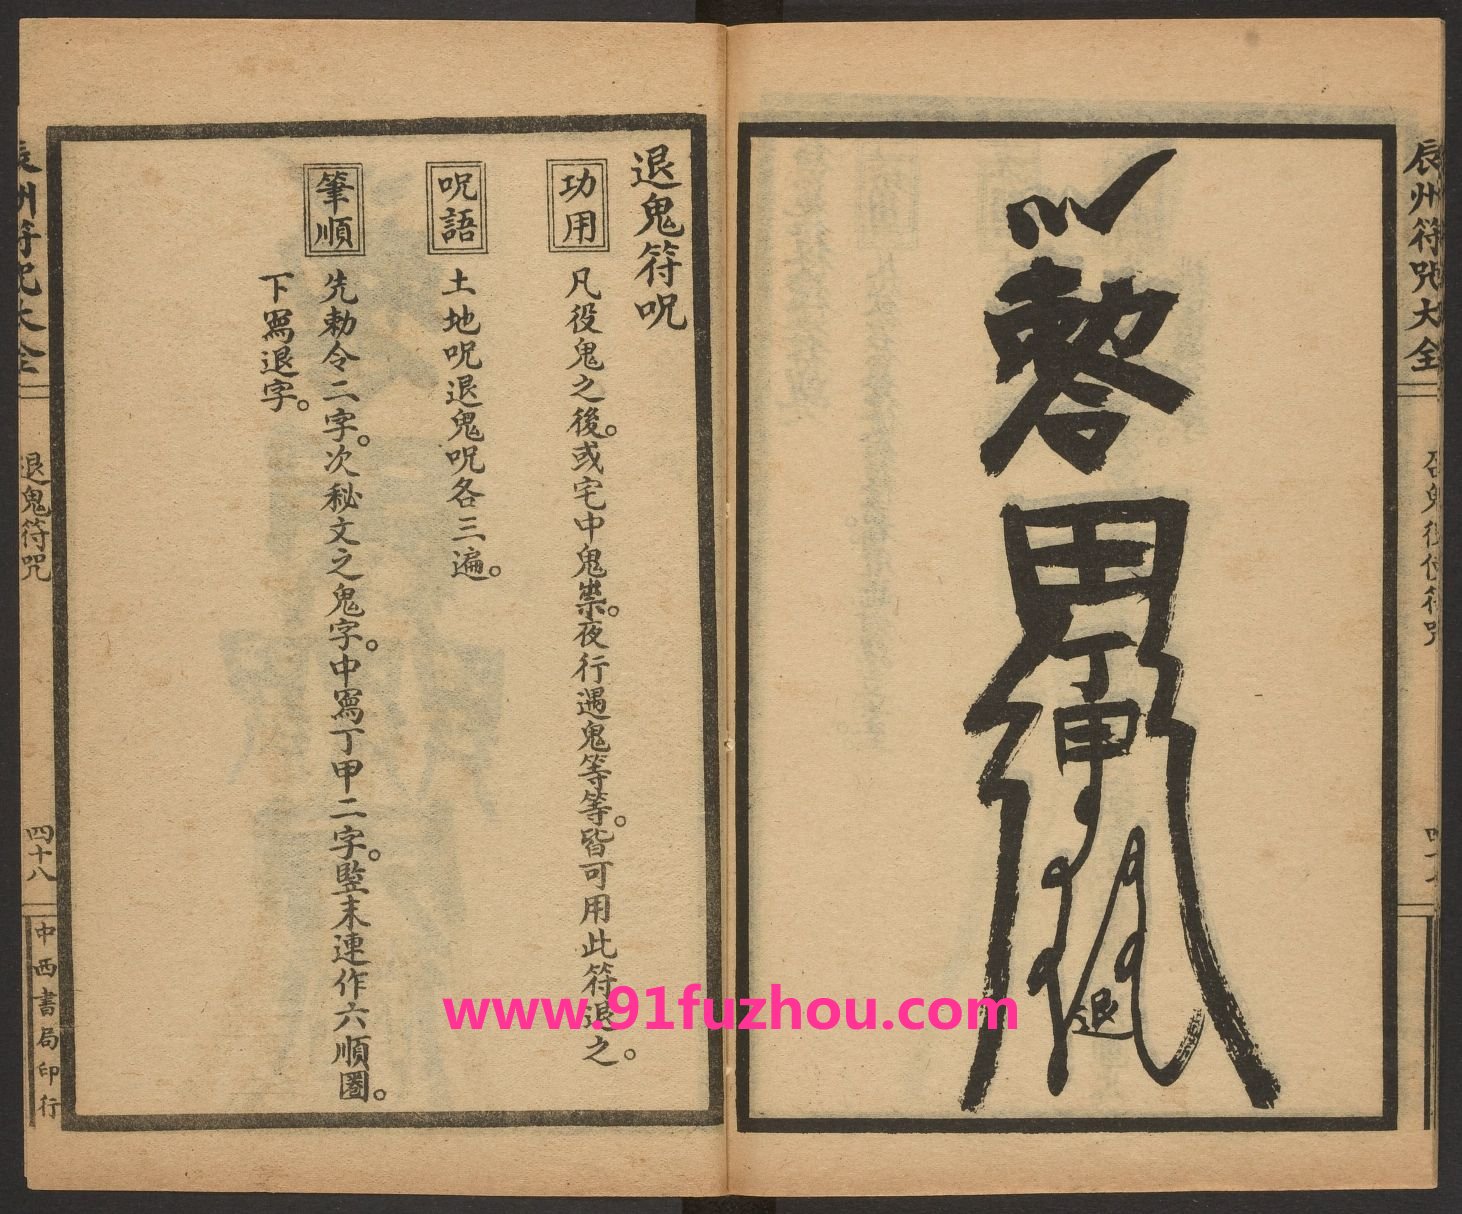 辰州符咒大全
召鬼役使符咒
敕令
丁甲
退
退鬼符呪
功用
凡役鬼之後。或宅中鬼祟。夜行遇鬼等等。皆可用此符退之。
呪語
土地呪退鬼呪各三遍。
筆順
先勅令二字。次秘文之鬼字。中寫丁甲二字。竪末連作六順圈。
下寫退字。
辰州符咒大全
退鬼符咒
四十八
中西書局印行
www.91fuzhou.com